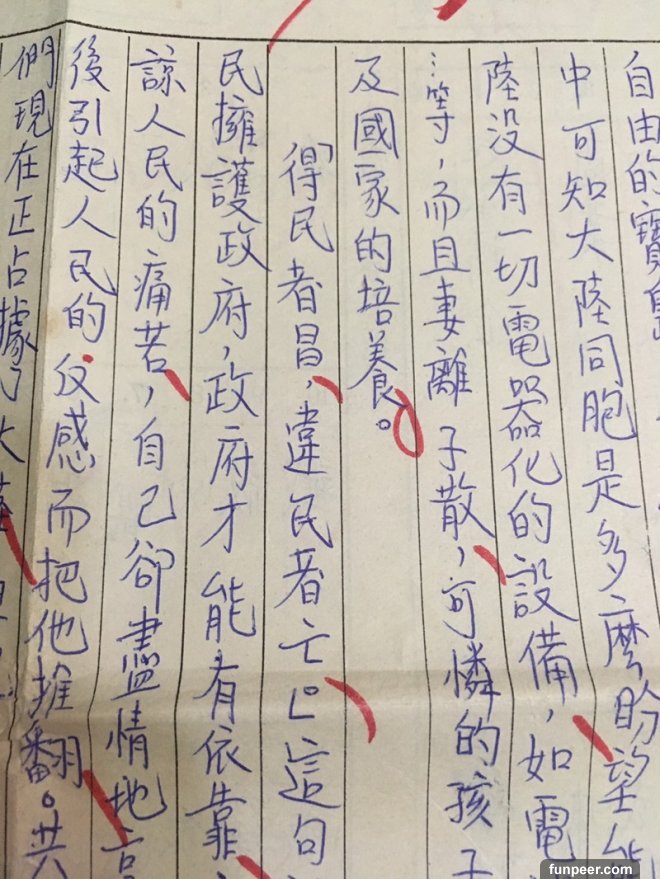 自由的寶島
中可知大陸同胞是多麼盼望能
陸没有一切電器化的設備，如電
⋮等，而且妻離子散，可憐的孩子
及國家的培養。
「得民者昌，違民者亡」。這句
民擁護政府，政府才能有依靠
諒人民的痛苦，自己卻盡情地
後引起人民的反感而把他推翻。共
們現在正占據了大陸
funpeer.com